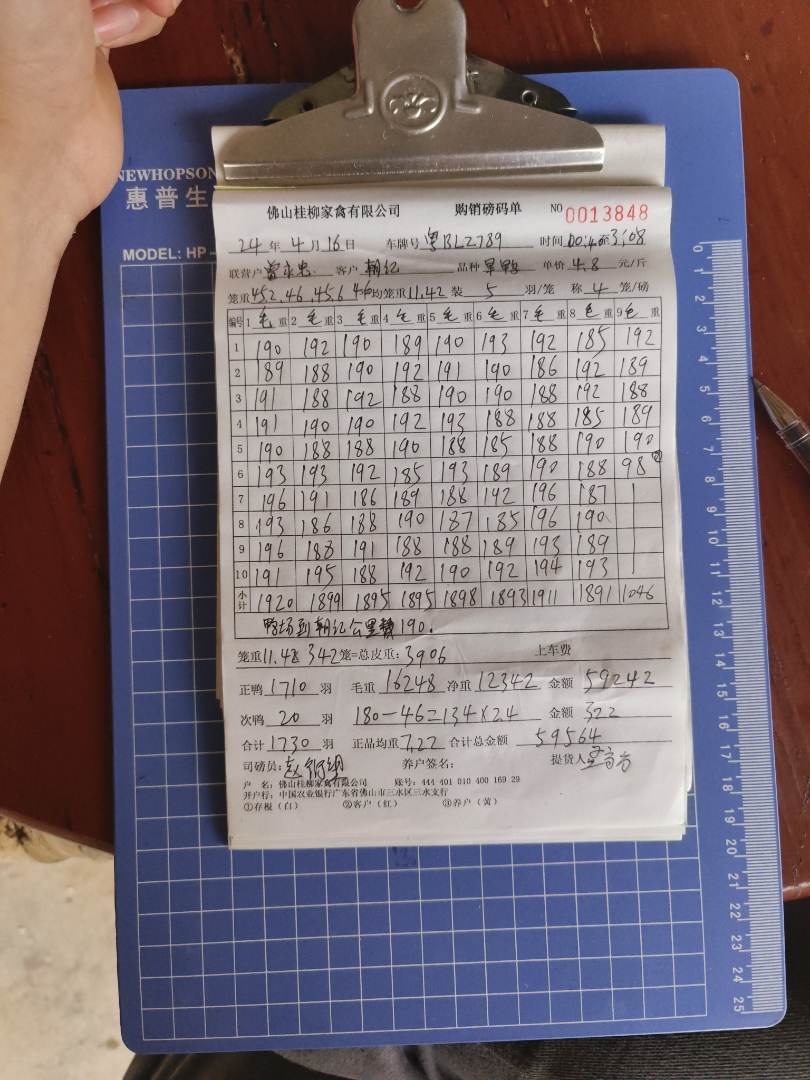 NEWHOPSON
惠普生
MODEL: HP-
佛山桂柳家禽有限公司 购销磅码单 NO 0013848
24 年 4 月 16 日 车牌号 粤BL2789 时间 00:40至3:08
联营户 客户 朝纪 品种 旱鸭 单价 4.8 元/斤
笼重 45.2.46.45.6 46 平均笼重 11.42 装 5 羽/笼 称 4 笼/磅
编号 1 毛 重 2 毛 重 3 毛 重 4 毛 重 5 毛 重 6 毛 重 7 毛 重 8 毛 重 9 毛 重
1 190 192 190 189 190 193 192 185 192
2 189 188 190 192 191 190 186 192 189
3 191 188 192 188 190 190 188 192 188
4 191 190 190 192 193 188 188 185 189
5 190 188 188 190 188 185 188 190 190
6 193 193 192 185 193 189 190 188 98 ②
7 196 191 186 189 188 192 196 187
8 193 186 188 190 187 185 196 190
9 196 188 191 188 188 189 193 189
10 191 195 188 192 190 192 194 193
小计 1920 1899 1895 1895 1898 1893 1911 1891 1046
鸭场到朝纪公里数190.
笼重 11.48 342 笼=总皮重: 3906 上车费
正鸭 1710 羽 毛重 16248 净重 12342 金额 59242
次鸭 20 羽 180-46=134×2.4 金额 322
合计 1730 羽 正品均重 7.22 合计总金额 59564
司磅员: 养户签名: 提货人
户 名: 佛山桂柳家禽有限公司 账号: 444 401 010 400 169 29
开户行: 中国农业银行广东省佛山市三水区三水支行
①存根（白） ②客户（红） ③养户（黄）
0
1
2
3
4
5
6
7
8
9
10
11
12
13
14
15
16
17
18
19
20
21
22
23
24
25